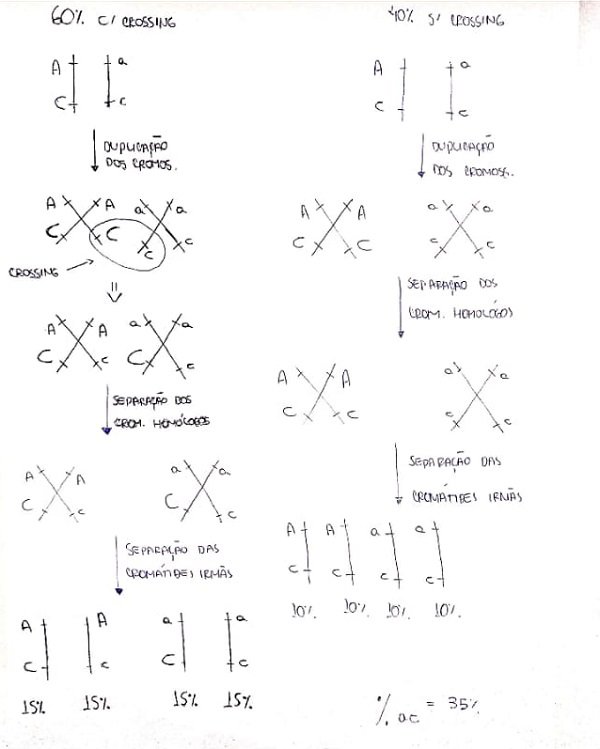 60% C/ CROSSING
A a
C c
DUPLICAÇÃO
DOS CROMOS.
A A a a
C C c c
CROSSING
A A a a
C c C c
SEPARAÇÃO DOS
CROM. HOMÓLOGOS
A A a a
C c C c
SEPARAÇÃO DAS
CROMÁTIDES IRMÃS
A A a a
C c C c
15% 15% 15% 15%
40% S/ CROSSING
A a
C c
DUPLICAÇÃO
DOS CROMOSS.
A A a a
C C c c
SEPARAÇÃO DOS
CROM. HOMÓLOGOS
A A a a
C C c c
SEPARAÇÃO DAS
CROMÁTIDES IRMÃS
A A a a
C C c c
10% 10% 10% 10%
% ac = 35%